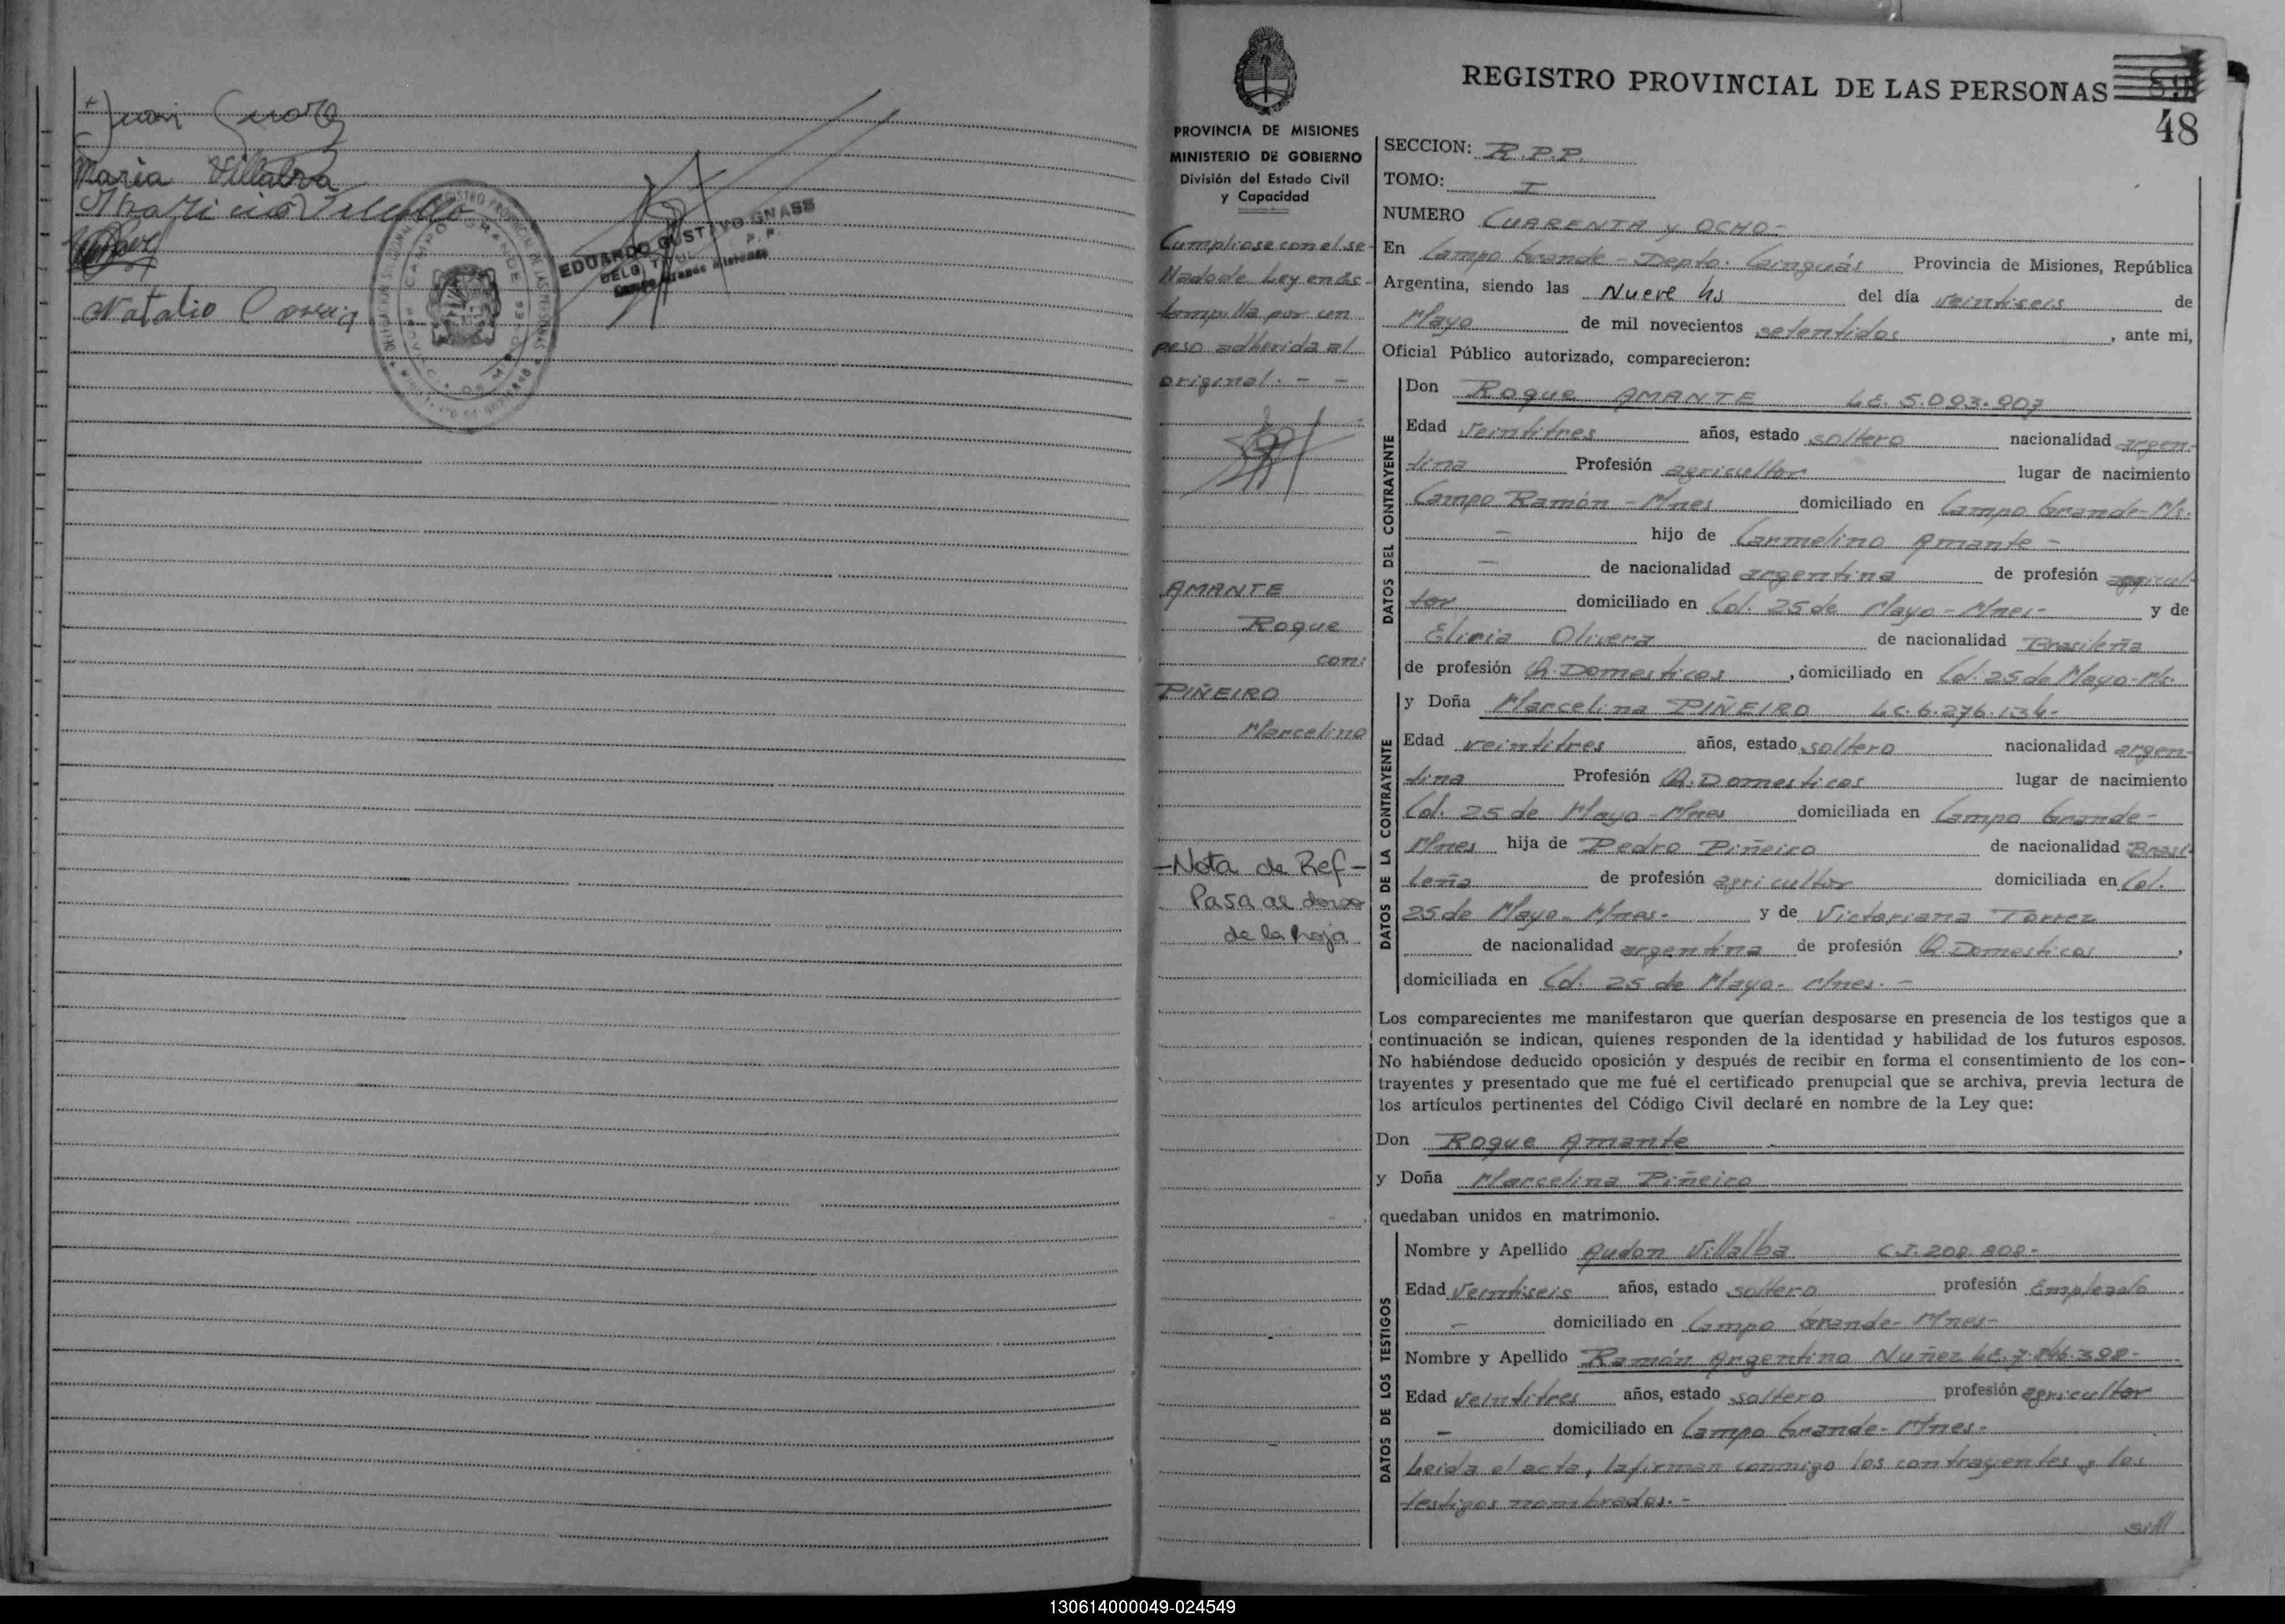 Juan
Maria Villalva
Natalio
EDUARDO GUSTAVO GNASS
R. P. P.
PROVINCIA DE MISIONES
MINISTERIO DE GOBIERNO
División del Estado Civil
y Capacidad
Cumpliose con el se-
llado de Ley en es-
tampilla por un
peso adherida al
original. - -
AMANTE
Roque
con:
PIÑEIRO
Marcelina
-Nota de Ref-
Pasa al dorso
de la hoja
REGISTRO PROVINCIAL DE LAS PERSONAS
48
SECCION: R.P.P.
TOMO: I
NUMERO CUARENTA y OCHO-
En Campo Grande - Depto. Cainguás Provincia de Misiones, República
Argentina, siendo las Nueve hs del día veintiseis de
Mayo de mil novecientos setentidos, ante mi,
Oficial Público autorizado, comparecieron:
DATOS DEL CONTRAYENTE
Don Roque AMANTE L.E. 5.093.907
Edad veintitres años, estado soltero nacionalidad argen-
tina Profesión agricultor lugar de nacimiento
Campo Ramón - Mnes domiciliado en Campo Grande-Ms.
- hijo de Carmelino Amante -
- de nacionalidad argentina de profesión agricul-
tor domiciliado en Col. 25 de Mayo - Mnes- y de
Olivera de nacionalidad Brasileña
de profesión Q. Domesticos, domiciliado en Col. 25 de Mayo-Ms.
DATOS DE LA CONTRAYENTE
y Doña Marcelina PIÑEIRO L.C. 6.276.134-
Edad veintitres años, estado soltera nacionalidad argen-
tina Profesión Q. Domesticos lugar de nacimiento
Col. 25 de Mayo - Mnes domiciliada en Campo Grande-
Mnes hija de Pedro Piñeiro de nacionalidad Brasi-
leña de profesión agricultor domiciliada en Col.
25 de Mayo- Mnes- y de Victoriana Torrez
de nacionalidad argentina de profesión Q. Domesticos,
domiciliada en Col. 25 de Mayo- Mnes. -
Los comparecientes me manifestaron que querían desposarse en presencia de los testigos que a
continuación se indican, quienes responden de la identidad y habilidad de los futuros esposos.
No habiéndose deducido oposición y después de recibir en forma el consentimiento de los con-
trayentes y presentado que me fué el certificado prenupcial que se archiva, previa lectura de
los artículos pertinentes del Código Civil declaré en nombre de la Ley que:
Don Roque Amante
y Doña Marcelina Piñeiro
quedaban unidos en matrimonio.
DATOS DE LOS TESTIGOS
Nombre y Apellido Audon Villalba C.I. 208.808-
Edad veintiseis años, estado soltero profesión Empleado
- domiciliado en Campo Grande- Mnes-
Nombre y Apellido Ramón Argentino Nuñez L.E. 7.846.398-
Edad veintitres años, estado soltero profesión agricultor
- domiciliado en Campo Grande- Mnes-
Leida el acta, la firman conmigo los contrayentes y los
testigos nombrados. -
130614000049-024549